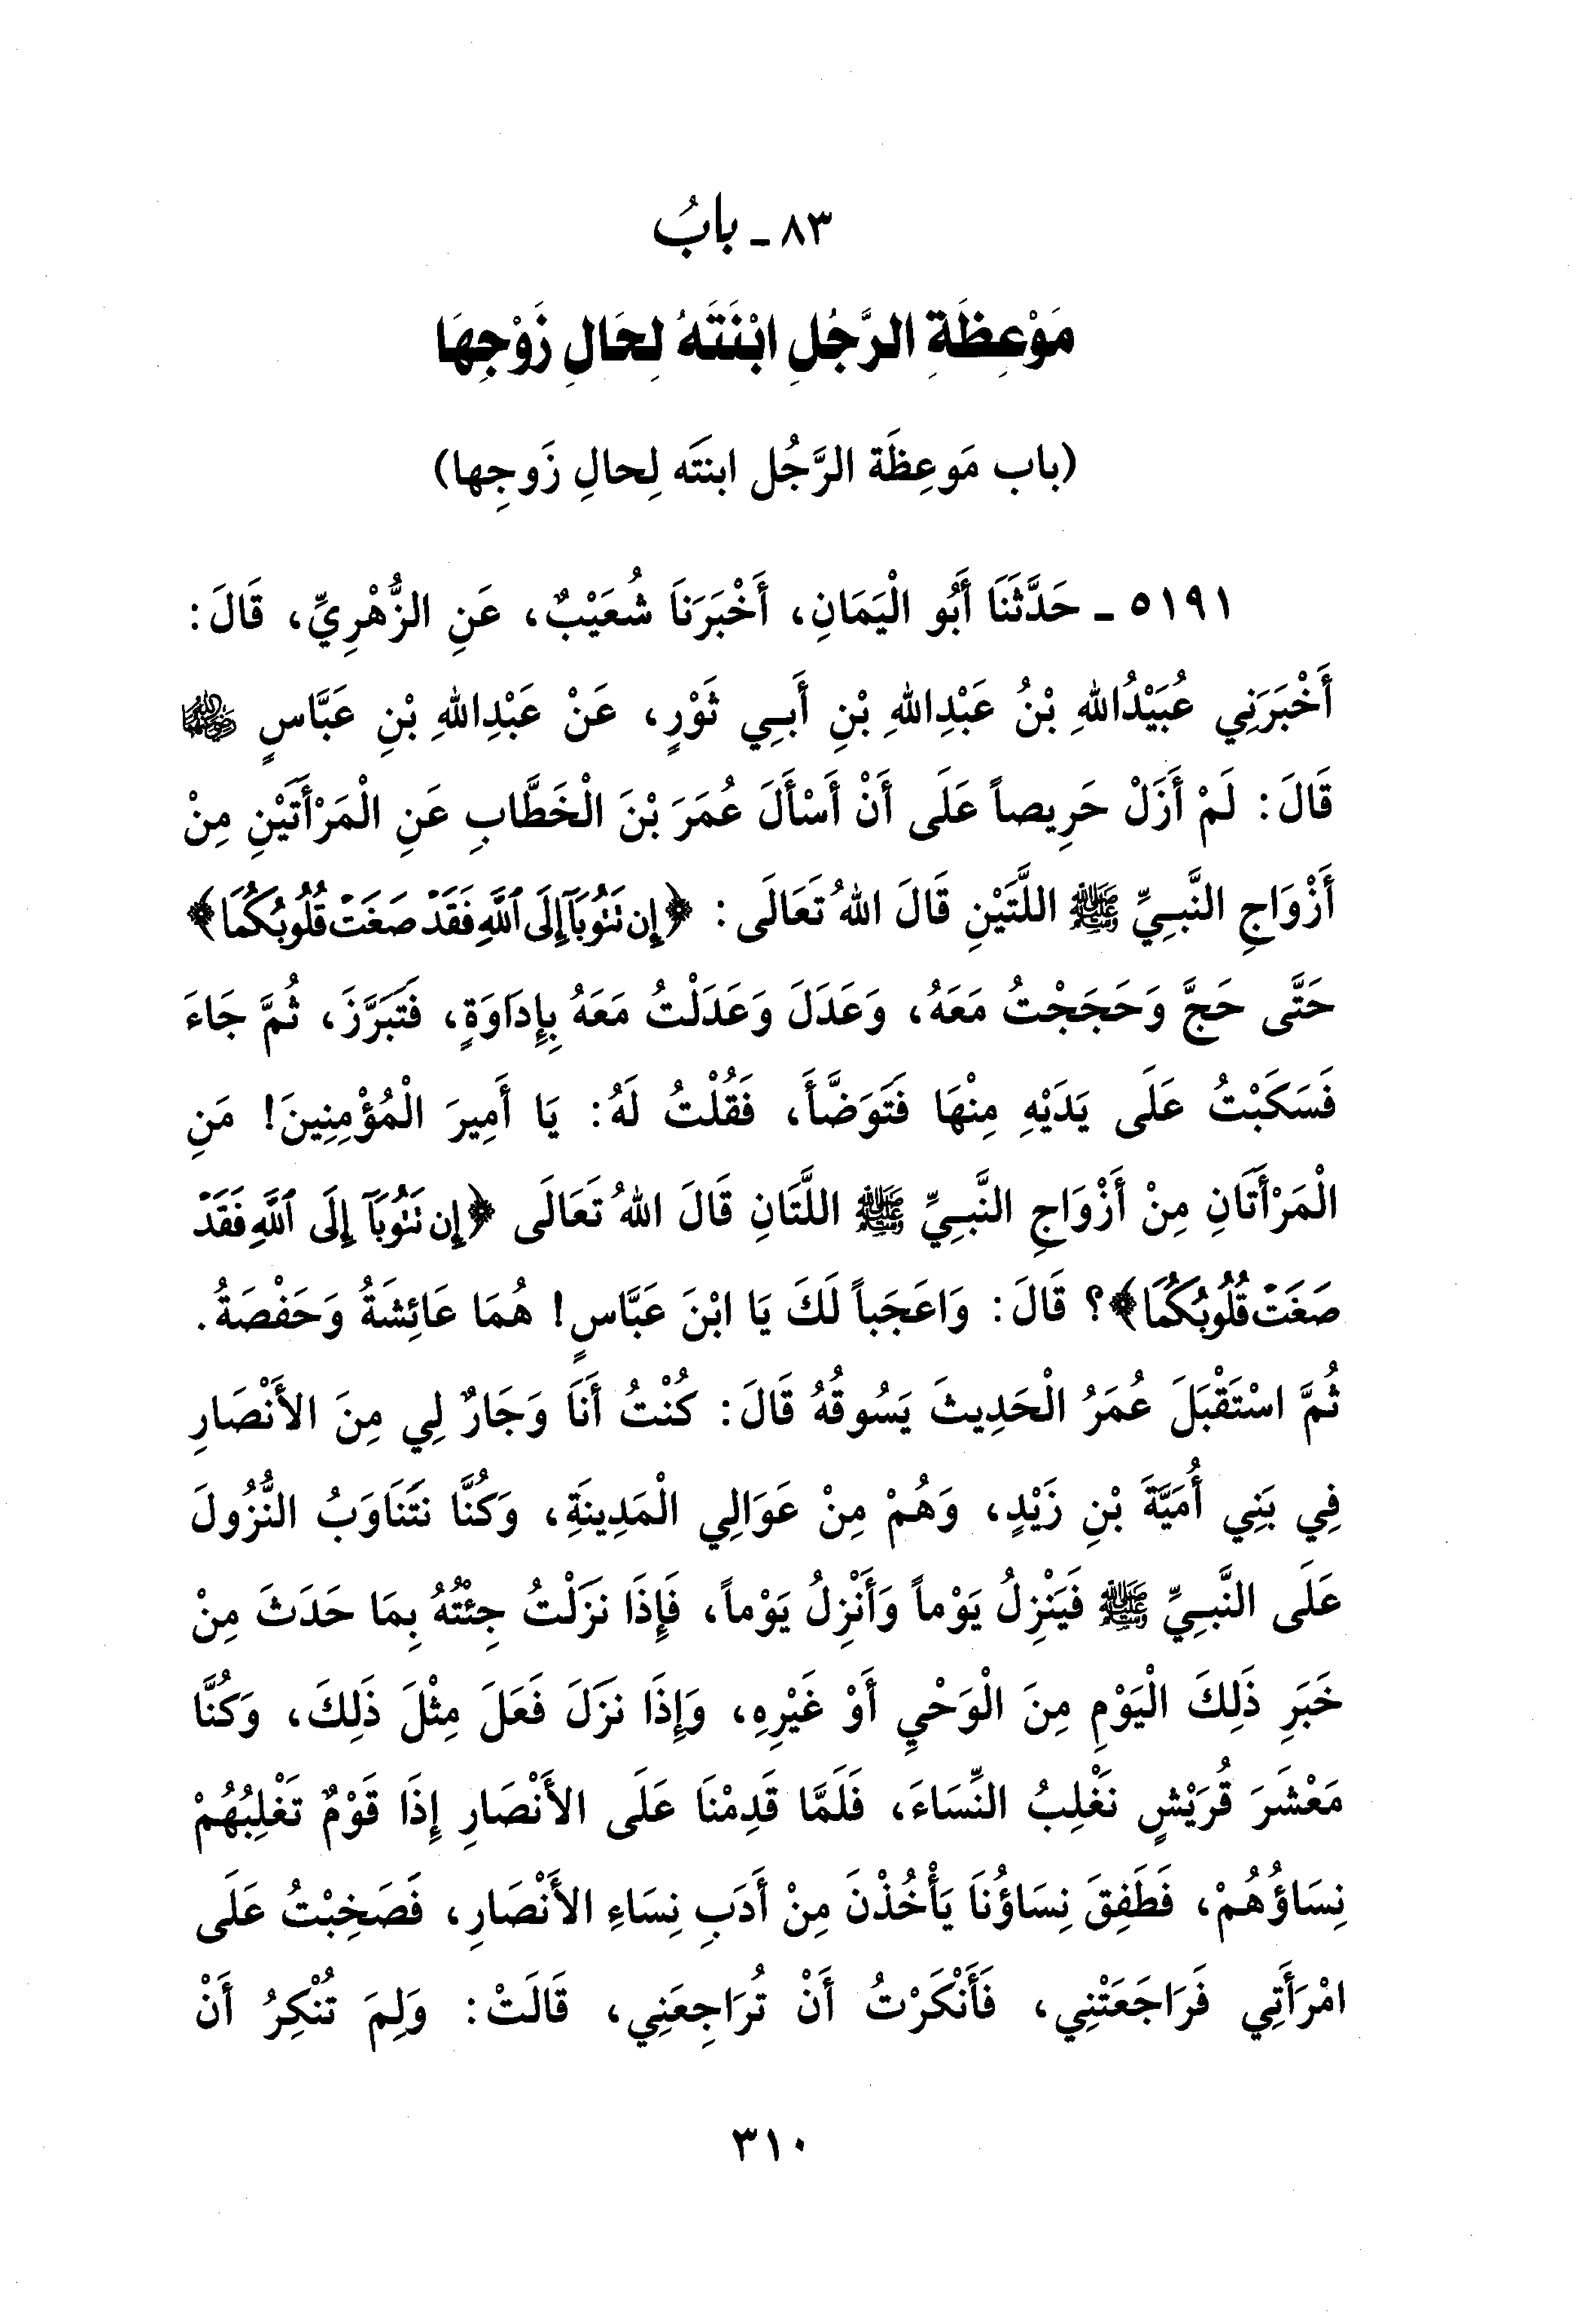 ٨٣ ـ بابُ
مَوْعِظَةِ الرَّجُلِ ابْنَتَهُ لِحَالِ زَوْجِهَا
(باب مَوعِظَة الرَّجُل ابنتَه لِحالِ زَوجِها)
٥١٩١ ـ حَدَّثَنَا أَبُو الْيَمَانِ، أَخْبَرَنَا شُعَيْبٌ، عَنِ الزُّهْرِيِّ، قَالَ:
أَخْبَرَنِي عُبَيْدُاللهِ بْنُ عَبْدِاللهِ بْنِ أَبِي ثَوْرٍ، عَنْ عَبْدِاللهِ بْنِ عَبَّاسٍ ﵄
قَالَ: لَمْ أَزَلْ حَرِيصاً عَلَى أَنْ أَسْأَلَ عُمَرَ بْنَ الْخَطَّابِ عَنِ الْمَرْأَتَيْنِ مِنْ
أَزْوَاجِ النَّبِيِّ ﷺ اللَّتَيْنِ قَالَ اللهُ تَعَالَى: ﴿إِن تَتُوبَآ إِلَى ٱللَّهِ فَقَدْ صَغَتْ قُلُوبُكُمَا﴾
حَتَّى حَجَّ وَحَجَجْتُ مَعَهُ، وَعَدَلَ وَعَدَلْتُ مَعَهُ بِإِدَاوَةٍ، فَتَبَرَّزَ، ثُمَّ جَاءَ
فَسَكَبْتُ عَلَى يَدَيْهِ مِنْهَا فَتَوَضَّأَ، فَقُلْتُ لَهُ: يَا أَمِيرَ الْمُؤْمِنِينَ! مَنِ
الْمَرْأَتَانِ مِنْ أَزْوَاجِ النَّبِيِّ ﷺ اللَّتَانِ قَالَ اللهُ تَعَالَى ﴿إِن تَتُوبَآ إِلَى ٱللَّهِ فَقَدْ
صَغَتْ قُلُوبُكُمَا﴾؟ قَالَ: وَاعَجَباً لَكَ يَا ابْنَ عَبَّاسٍ! هُمَا عَائِشَةُ وَحَفْصَةُ.
ثُمَّ اسْتَقْبَلَ عُمَرُ الْحَدِيثَ يَسُوقُهُ قَالَ: كُنْتُ أَنَا وَجَارٌ لِي مِنَ الأَنْصَارِ
فِي بَنِي أُمَيَّةَ بْنِ زَيْدٍ، وَهُمْ مِنْ عَوَالِي الْمَدِينَةِ، وَكُنَّا نَتَنَاوَبُ النُّزُولَ
عَلَى النَّبِيِّ ﷺ فَيَنْزِلُ يَوْماً وَأَنْزِلُ يَوْماً، فَإِذَا نَزَلْتُ جِئْتُهُ بِمَا حَدَثَ مِنْ
خَبَرِ ذَلِكَ الْيَوْمِ مِنَ الْوَحْيِ أَوْ غَيْرِهِ، وَإِذَا نَزَلَ فَعَلَ مِثْلَ ذَلِكَ، وَكُنَّا
مَعْشَرَ قُرَيْشٍ نَغْلِبُ النِّسَاءَ، فَلَمَّا قَدِمْنَا عَلَى الأَنْصَارِ إِذَا قَوْمٌ تَغْلِبُهُمْ
نِسَاؤُهُمْ، فَطَفِقَ نِسَاؤُنَا يَأْخُذْنَ مِنْ أَدَبِ نِسَاءِ الأَنْصَارِ، فَصَخِبْتُ عَلَى
امْرَأَتِي فَرَاجَعَتْنِي، فَأَنْكَرْتُ أَنْ تُرَاجِعَنِي، قَالَتْ: وَلِمَ تُنْكِرُ أَنْ
٣١٠